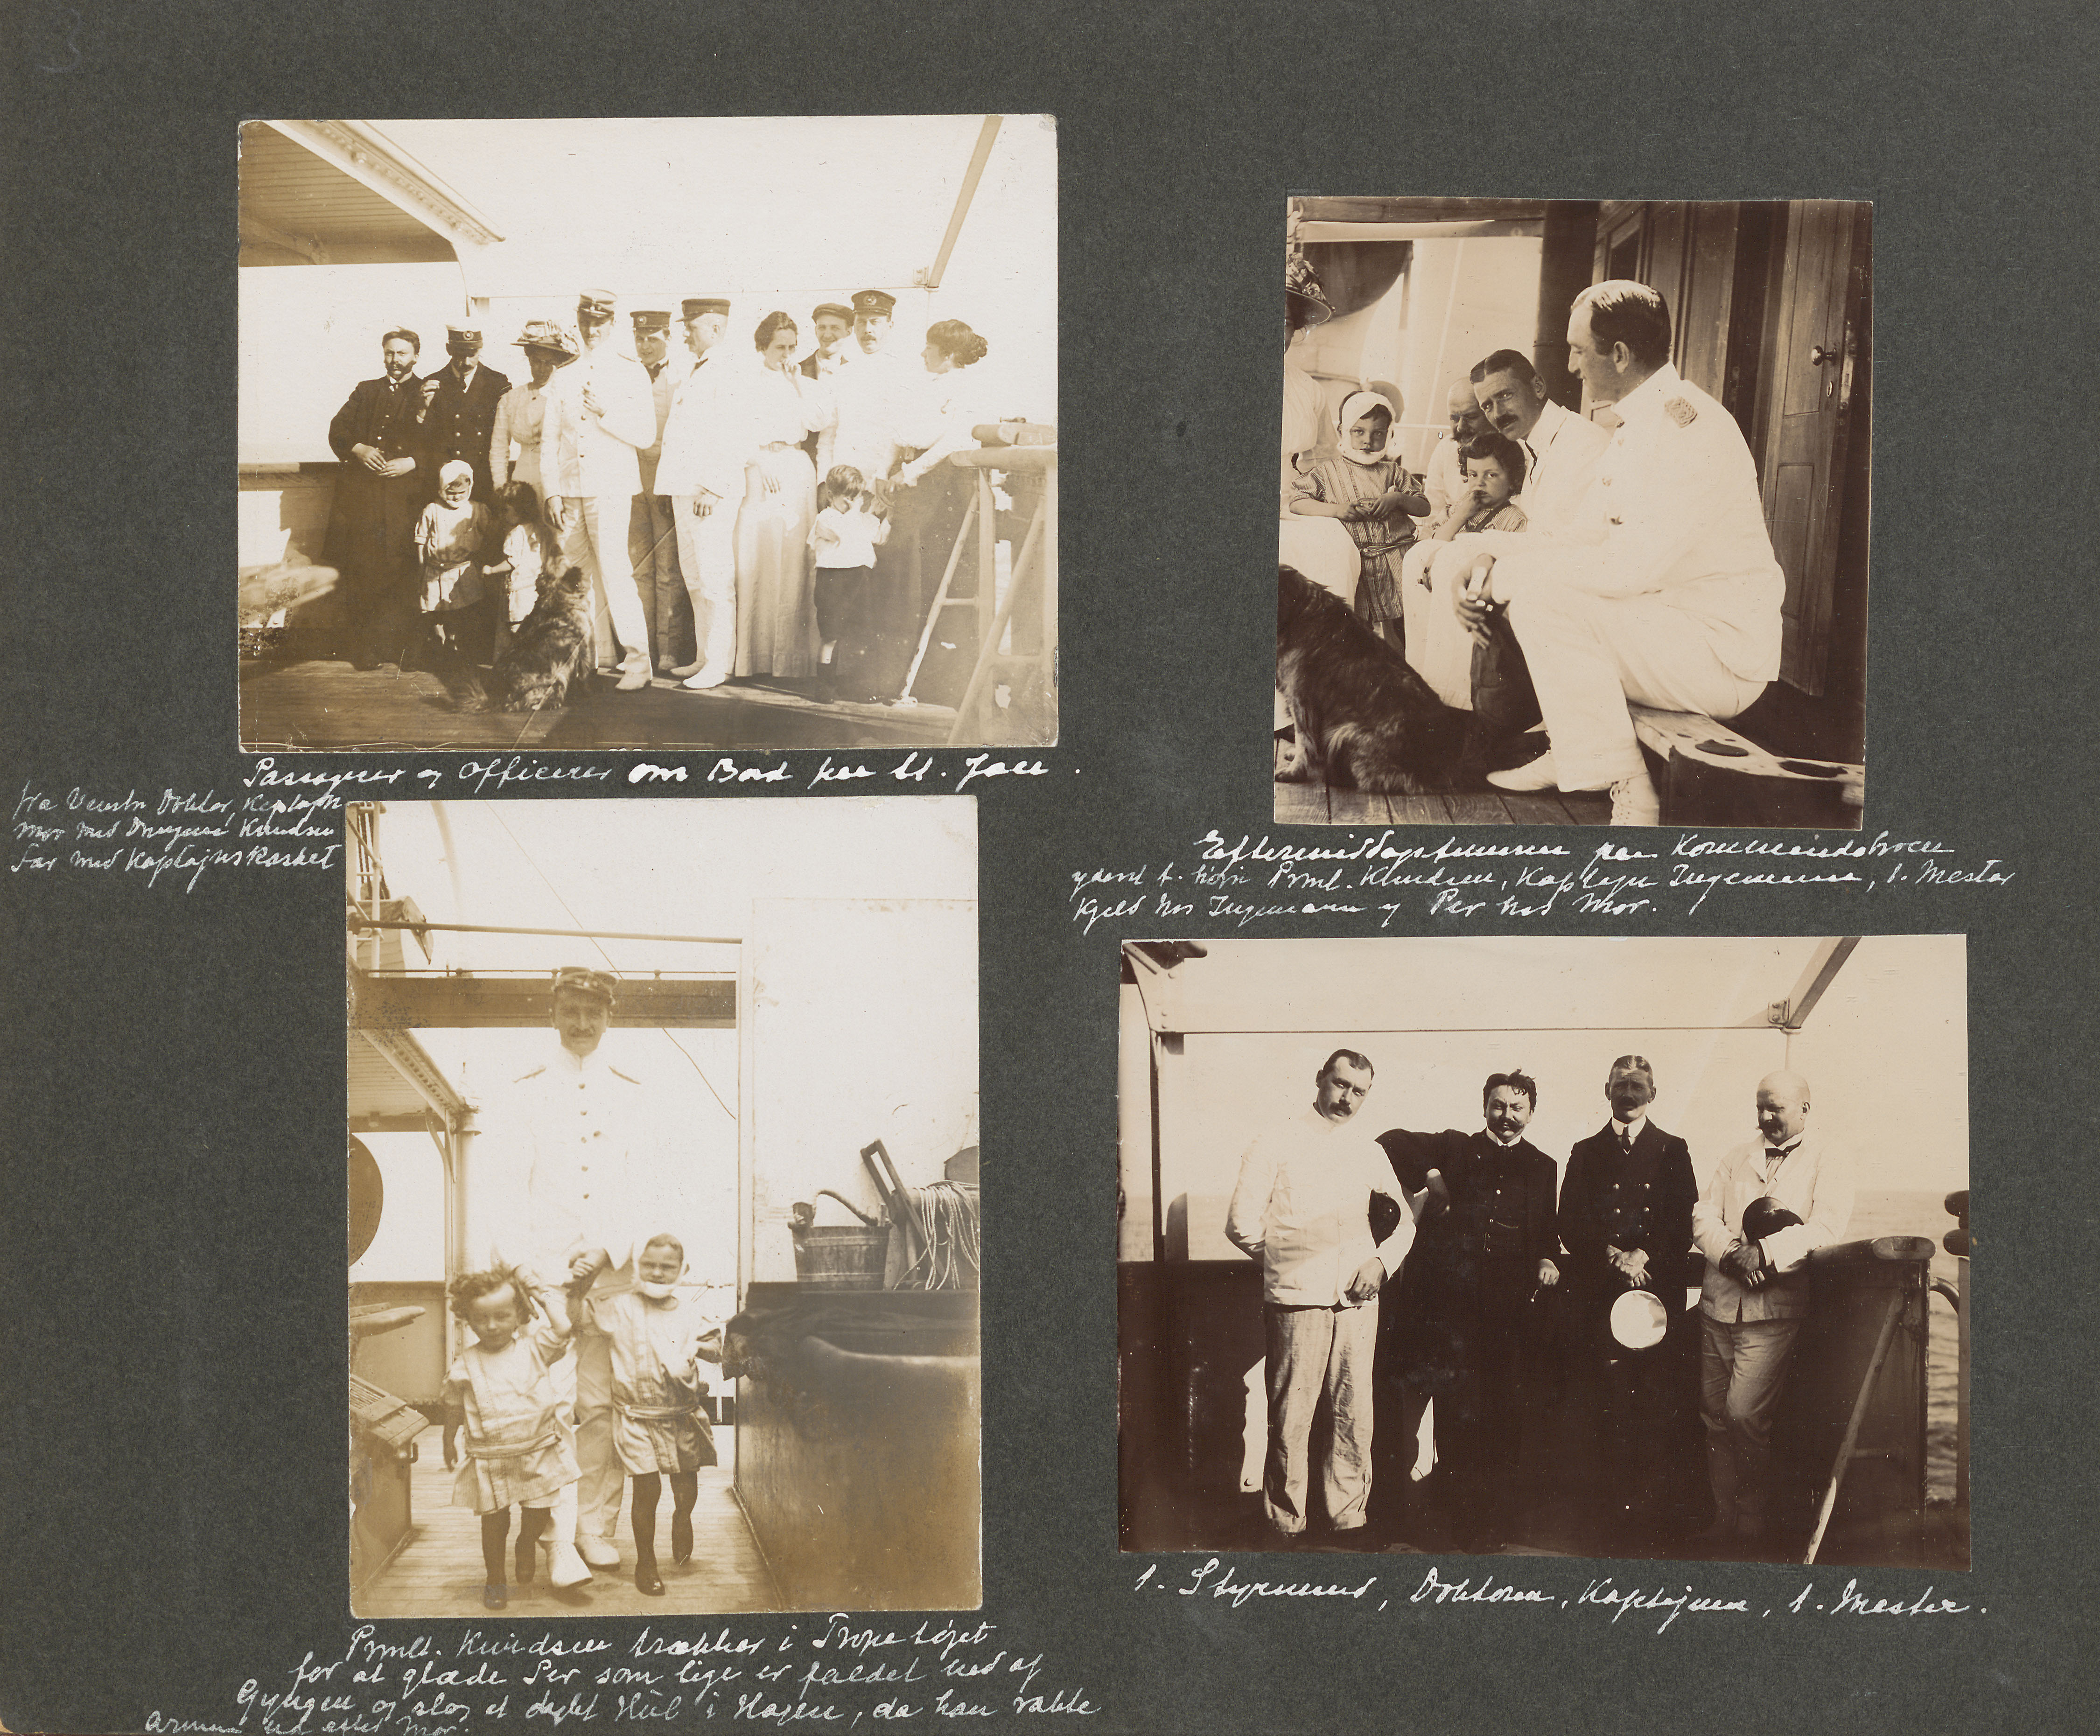 3
Passagerer og Officerer om Bord paa St. Jan.
fra Venstre Doktor, Kaptajn
Mor med Knudsen
Far med Kaptajnskasket
Eftermiddagstimen paa Kommandobroen
yderst t. højre Prmlt. Knudsen, Kaptajn Ingemann, 1. Mester
Kjeld hos Ingemann og Per hos Mor.
Prmlt. Knudsen trækker i Tropetøjet
for at glæde Per som lige er faldet ned af
Gyngen og slog et dybt Hul i Hagen, da han rakte
Armene ud efter Mor.
1. Styrmand, Doktoren, Kaptejnen, 1. Mester.